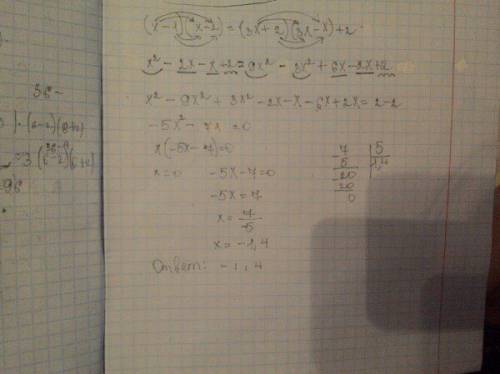 (x-1)(x-2)=(3x+2)(3x-x)+2
x²-2x-x+2=9x²-3x²+6x-2x+2
x²-9x²+3x²-2x-x-6x+2x=2-2
-5x²-7x=0
x(-5x-7)=0
x=0 -5x-7=0
-5x=7
x=7/-5
x=-1,4
Ответ: -1,4
7 5
5 1,4
20
20
0
36-
)·(6-2)(6+2)
=96